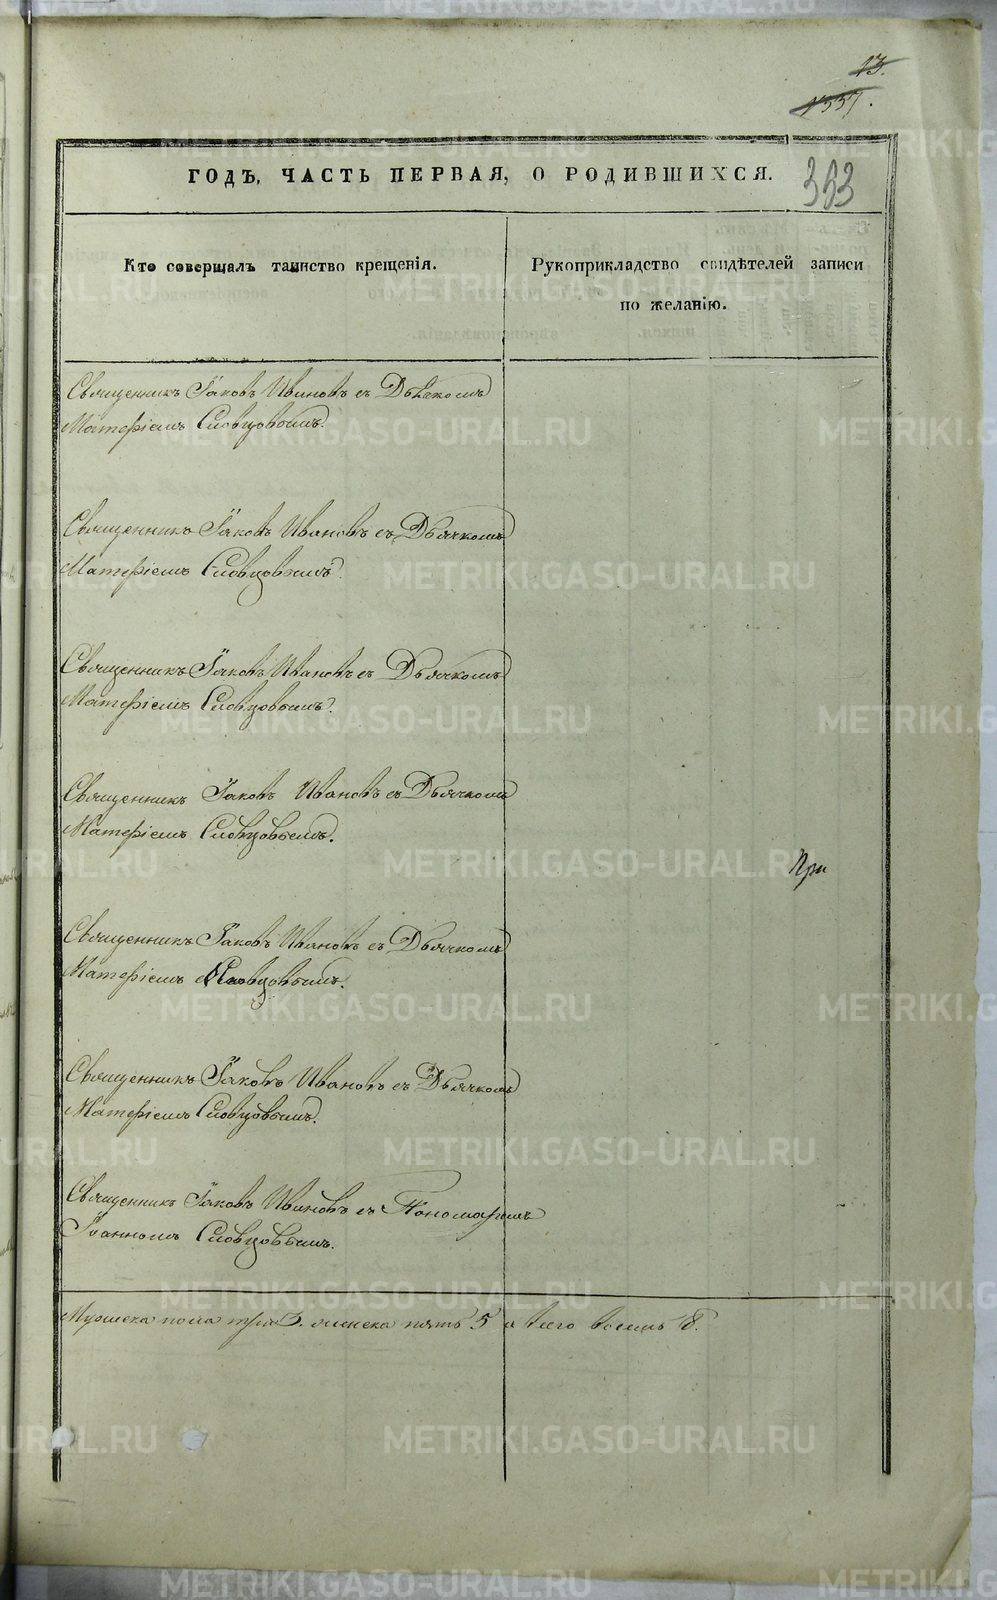 13.
1337.
ГОДЪ, ЧАСТЬ ПЕРВАЯ, О РОДИВШИХСЯ.
Кто совершалъ таинство крещенія.
Рукоприкладство свидѣтелей записи
по желанію.
Священникъ Іаковъ Ивановъ съ Дьячкомъ
Матѳіемъ Словцовымъ.
Священникъ Іаковъ Ивановъ съ Дьячкомъ
Матѳіемъ Словцовымъ.
Священникъ Іаковъ Ивановъ съ Дьячкомъ
Матѳіемъ Словцовымъ.
Священникъ Іаковъ Ивановъ съ Дьячкомъ
Матѳіемъ Словцовымъ.
При
Священникъ Іаковъ Ивановъ съ Дьячкомъ
Матѳіемъ Словцовымъ.
Священникъ Іаковъ Ивановъ съ Дьячкомъ
Матѳіемъ Словцовымъ.
Священникъ Іаковъ Ивановъ съ Пономаремъ
Іоанномъ Словцовымъ.
Мужеска пола три 3. женска пять 5 а всего восемь 8.
METRIKI.GASO-URAL.RU